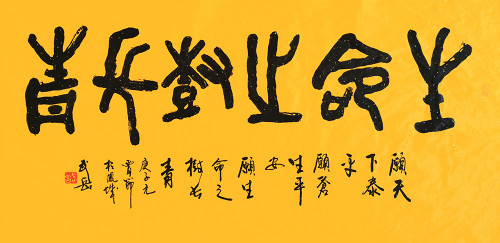 生命之樹长青
願天
下泰
平
願蒼
生平
安
願生
命之
樹长
青
庚子元
宵節
於鳳城
武岳